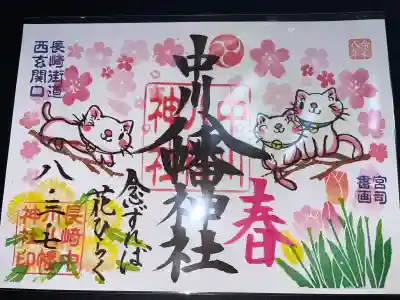 長崎街道
西玄関口
中川八幡神社
春
宮司
書画
念ずれば
花ひらく
八・三・七
長崎中
川八幡
神社印